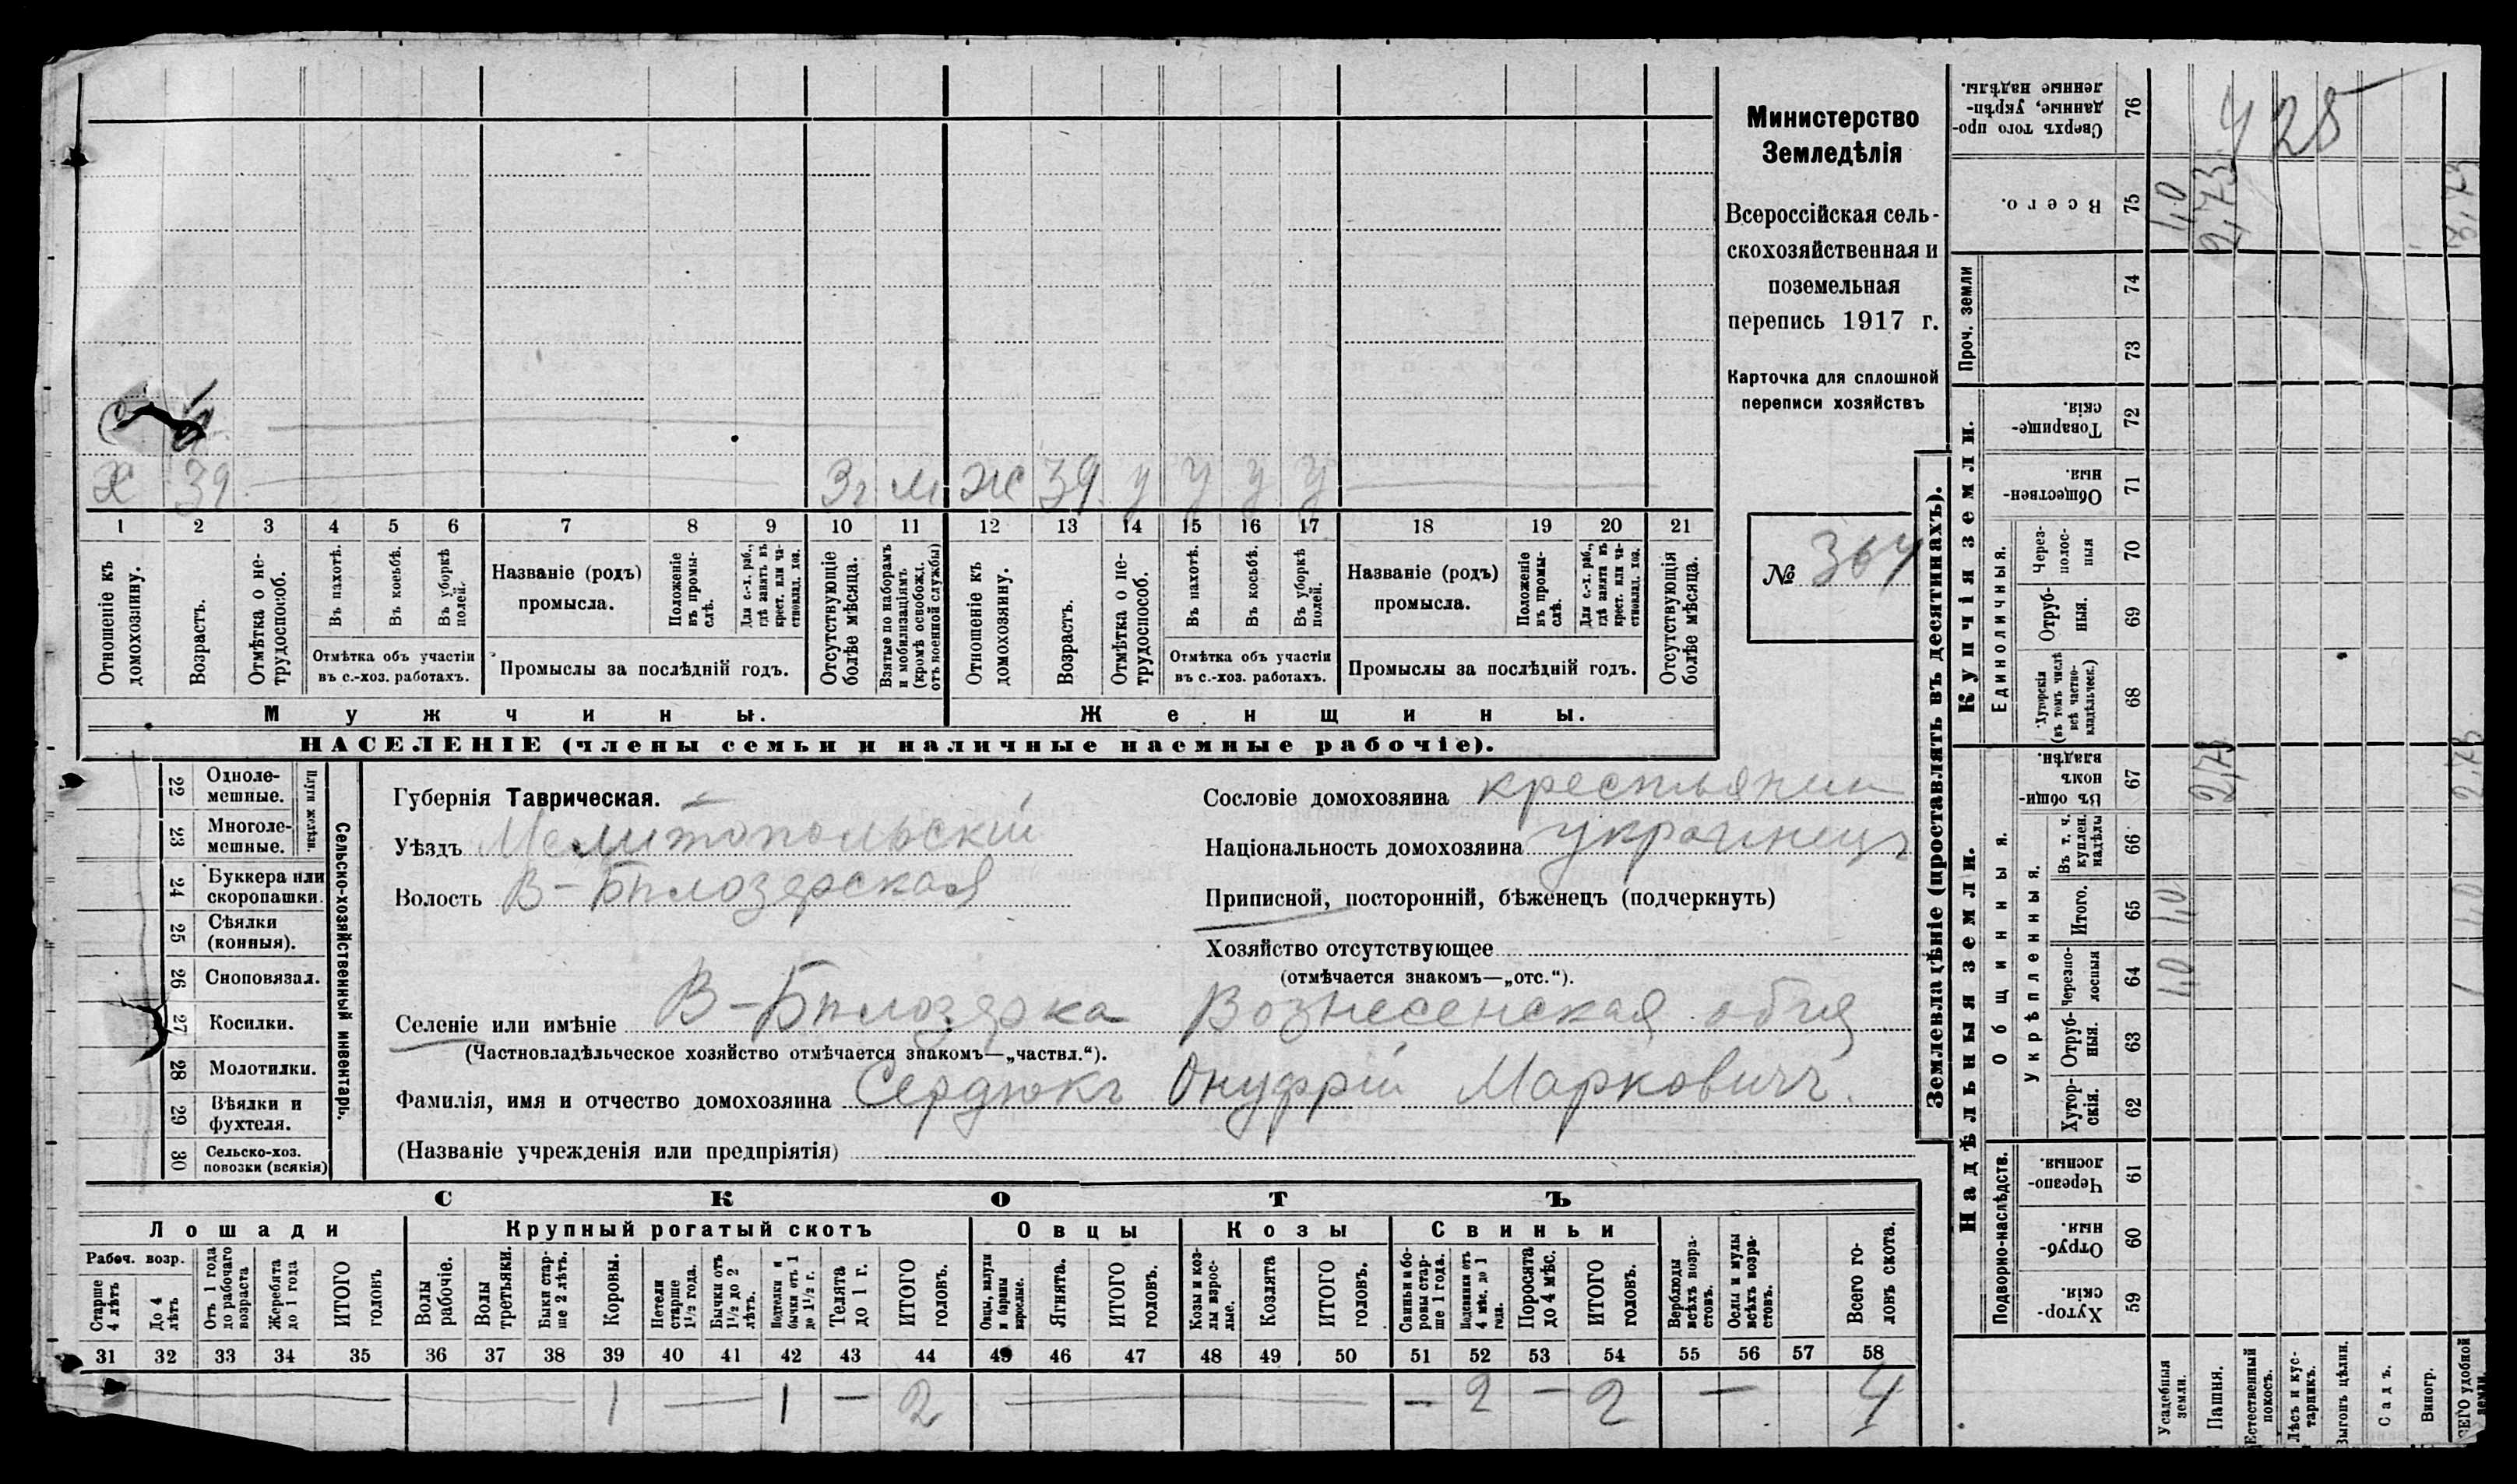 Министерство
Земледѣлія
Всероссійская сель-
скохозяйственная и
поземельная
перепись 1917 г.
Карточка для сплошной
переписи хозяйствъ
№ 364
х 39 3г м ж 39 у у у у
1 2 3 4 5 6 7 8 9 10 11 12 13 14 15 16 17 18 19 20 21
Отношеніе къ домохозяину.
Возрастъ.
Отмѣтка о не-трудоспособ.
Въ пахотѣ.
Въ косьбѣ.
Въ уборкѣ полей.
Отмѣтка объ участіи
въ с.-хоз. работахъ.
Названіе (родъ)
промысла.
Положеніе въ промы-слѣ.
Для с.-х. раб., гдѣ занятъ въ крест. или ча-стновлад. хоз.
Промыслы за послѣдній годъ.
Отсутствующіе болѣе мѣсяца.
Взятые по наборамъ и мобилизаціямъ (кромѣ освобожд. отъ военной службы)
Отношеніе къ домохозяину.
Возрастъ.
Отмѣтка о не-трудоспособ.
Въ пахотѣ.
Въ косьбѣ.
Въ уборкѣ полей.
Отмѣтка объ участіи
въ с.-хоз. работахъ.
Названіе (родъ)
промысла.
Положеніе въ промы-слѣ.
Для с.-х. раб., гдѣ занята въ крест. или ча-стновлад. хоз.
Промыслы за послѣдній годъ.
Отсутствующія болѣе мѣсяца.
Мужчины. Женщины.
НАСЕЛЕНІЕ (члены семьи и наличные наемные рабочіе).
Сельско-хозяйственный инвентарь.
Плуги желѣзн.
22 Одноле-мешные.
23 Многоле-мешные.
24 Буккера или скоропашки.
25 Сѣялки (конныя).
26 Сноповязал.
27 Косилки.
28 Молотилки.
29 Вѣялки и фухтеля.
30 Сельско-хоз. повозки (всякія)
Губернія Таврическая.
Уѣздъ Мелитопольскій
Волость В-Бѣлозерская
Сословіе домохозяина крестьянин
Національность домохозяина украинецъ
Приписной, посторонній, бѣженецъ (подчеркнуть)
Хозяйство отсутствующее
(отмѣчается знакомъ—„отс.“).
Селеніе или имѣніе В-Бѣлозерка Вознесенская
(Частновладѣльческое хозяйство отмѣчается знакомъ—„частвл.“).
Фамилія, имя и отчество домохозяина Сердюкъ Онуфрій Марковичъ.
(Названіе учрежденія или предпріятія)
СКОТЪ
Лошади Крупный рогатый скотъ Овцы Козы Свиньи
Рабоч. возр.
Старше 4 лѣтъ
До 4 лѣтъ
Отъ 1 года до рабочаго возраста
Жеребята до 1 года
ИТОГО головъ
Волы рабочіе.
Волы третьяки.
Быки стар-ше 2 лѣтъ.
Коровы.
Нетели старше 1½ года.
Бычки отъ 1½ до 2 лѣтъ.
Подтелки и бычки отъ 1 до 1½ г.
Телята до 1 г.
ИТОГО головъ.
Овцы, валухи и бараны взрослые.
Ягнята.
ИТОГО головъ.
Козы и коз-лы взрос-лые.
Козлята
ИТОГО головъ.
Свиньи и бо-ровы стар-ше 1 года.
Подсвинки отъ 4 мѣс. до 1 года.
Поросята до 4 мѣс.
ИТОГО головъ.
Верблюды всѣхъ возра-стовъ.
Ослы и мулы всѣхъ возра-стовъ.
Всего го-ловъ скота.
31 32 33 34 35 36 37 38 39 40 41 42 43 44 45 46 47 48 49 50 51 52 53 54 55 56 57 58
— — 1 — 1 — 2 — — 2 — 2 — 4
Землевладѣніе (проставлять въ десятинахъ).
Купчія земли.
Надѣльныя земли.
Проч. земли
Единоличныя.
Общинныя.
Укрѣпленныя.
Подворно-наслѣдств.
76 Сверхъ того про-данные, укрѣп-ленные надѣлы.
75 Всего. 1,0 2,73 3,73
74
73
72 Товарище-скія.
71 Обществен-ныя.
70 Через-полос-ныя
69 Отруб-ныя.
68 Хуторскія (въ томъ числѣ всѣ частно-владѣльческ.)
67 Въ общин-номъ владѣн. 2,73 2,73
66 Въ т. ч. куплен. надѣлы
65 Итого. 1,0 1,0
64 Черезпо-лосныя 1,0
63 Отруб-ныя.
62 Хутор-скія.
61 Черезпо-лосныя.
60 Отруб-ныя.
59 Хутор-скія.
Усадебныя земли.
Пашня.
Естественный покосъ.
Лѣсъ и кус-тарникъ.
Выгонъ цѣлин.
Садъ.
Виногр.
ВСЕГО удобной земли.